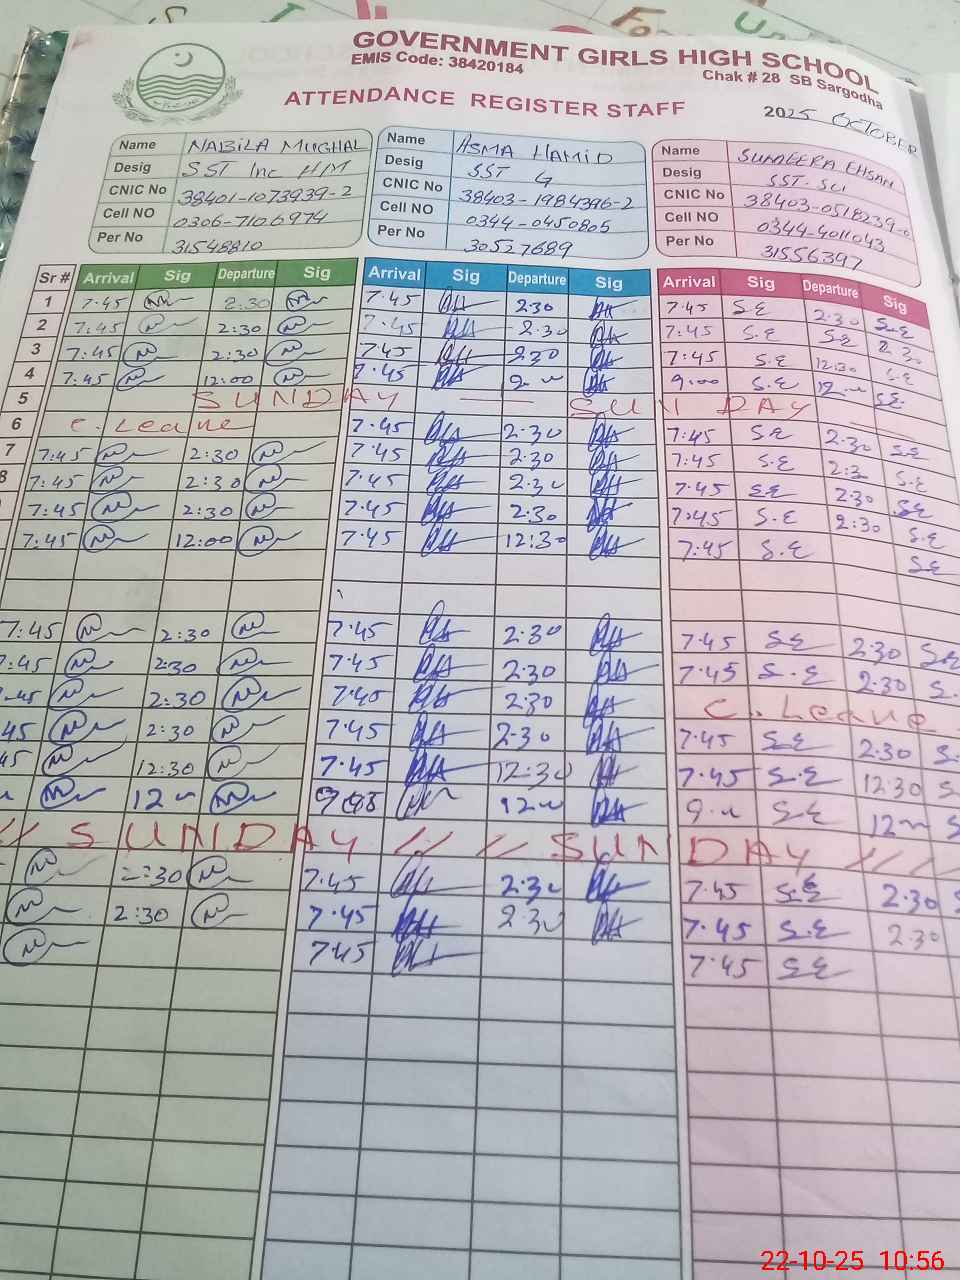 GOVERNMENT GIRLS HIGH SCHOOL
EMIS Code: 38420184
Chak # 28 SB Sargodha
ATTENDANCE REGISTER STAFF
2025 OCTOBER
Name NABILA MUGHAL Name ASMA HAMID Name SUMEERA EHSAN
Desig SST Inc H/M Desig SST G Desig SST. SCI
CNIC No 38401-1073939-2 CNIC No 38403-1984396-2 CNIC No 38403-0518239-
Cell NO 0306-7106974 Cell NO 0344-0450805 Cell NO 0344-4011043
Per No 31548810 Per No 30527689 Per No 31556397
Sr # Arrival Sig Departure Sig Arrival Sig Departure Sig Arrival Sig Departure Sig
1 7.45 2:30 7.45 2.30 7.45 S.E 2.30 S.E
2 7:45 2:30 7.45 2.30 7:45 S.E S.E 2.30
3 7:45 2:30 7.45 2.30 7:45 S.E 12:30 S.E
4 7:45 12:00 7.45 9:00 S.E S.E.
5 SUNDAY SUNDAY
6 C. Leave 7.45 2.30 7:45 S.E 2.30 S.E
7 7:45 2:30 7.45 2.30 7:45 S.E S.E
8 7:45 2:30 7.45 2.30 7:45 S.E 2.30 S.E
7:45 2:30 7.45 2.30 7:45 S.E 2:30 S.E
7:45 12:00 7.45 12:30 7:45 S.E S.E
7:45 2:30 7.45 2.30 7:45 S.E 2:30 S.E
7:45 2:30 7.45 2.30 7:45 S.E 2:30 S.
2:30 7.40 2.30 C. Leave
45 2:30 7.45 2.30 7:45 S.E 2:30 S.
45 12:30 7.45 12:30 7:45 S.E 12:30 S
12 12 9 S.E 12 S
// SUNDAY // // SUNDAY ///
2:30 7.45 2.30 7:45 S.E 2.30 S
2:30 7.45 2.30 7.45 S.E 2.30
7.45 7.45 S.E
22-10-25 10:56